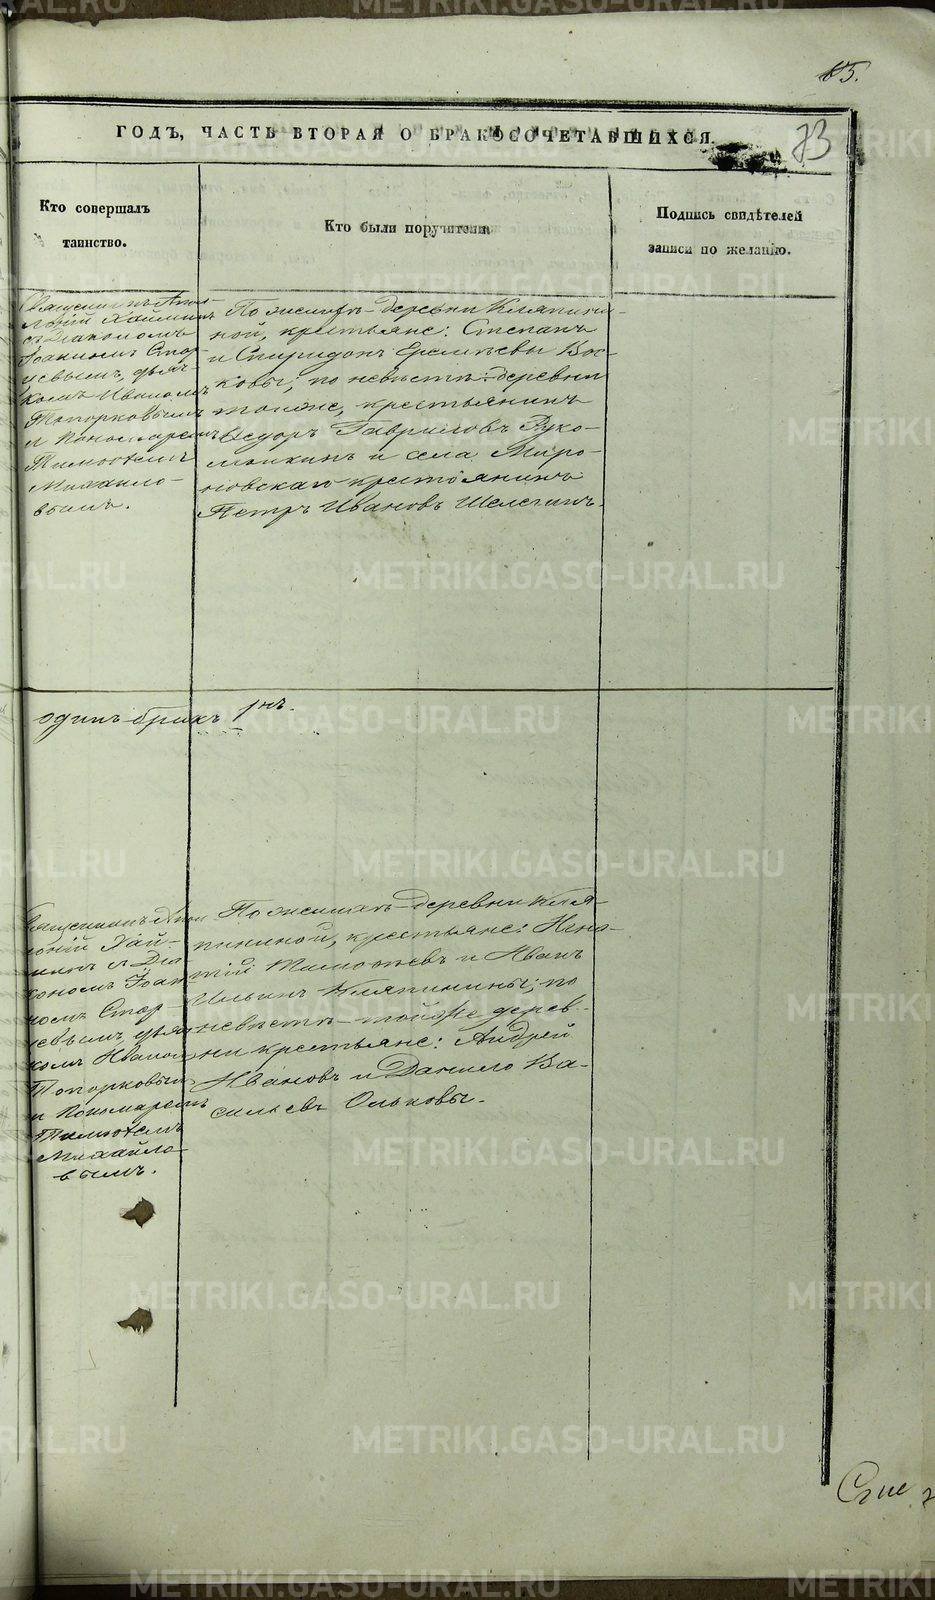 65.
ГОДЪ, ЧАСТЬ ВТОРАЯ О БРАКОСОЧЕТАВШИХСЯ.
73
Кто совершалъ
таинство.
Кто были поручители.
Подпись свидѣтелей
записи по желанію.
Священникъ
съ Діакономъ
Іоанномъ Стар-
цевымъ, дьяч-
комъ Иваномъ
Топорковымъ
и Пономаремъ
Тимофеемъ
Михайло-
вымъ.
По женихѣ деревни Кляпини-
ной, крестьяне: Степанъ
и Спиридонъ Еремѣевы Вос-
ковы; по невѣстѣ: деревни
тойже, крестьянинъ
Ѳедоръ Гавриловъ Руко-
мойкинъ и села Миро-
новскаго крестьянинъ
Петръ Ивановъ Шелегинъ.
одинъ бракъ
Священникъ
и Діа
кономъ Іоан
номъ Стар-
цевымъ, дьяч
комъ Иваномъ
Топорковымъ
и Пономаремъ
Тимофеемъ
Михайло
вымъ.
По женихѣ деревни Кля-
пининой, крестьяне: Игна-
тій Тимофѣевъ и Иванъ
Ильинъ Кляпинины; по
невѣстѣ тойже дерев-
ни крестьяне: Андрей
Ивановъ и Данило Ва-
сильевъ Ольковы.
METRIKI.GASO-URAL.RU